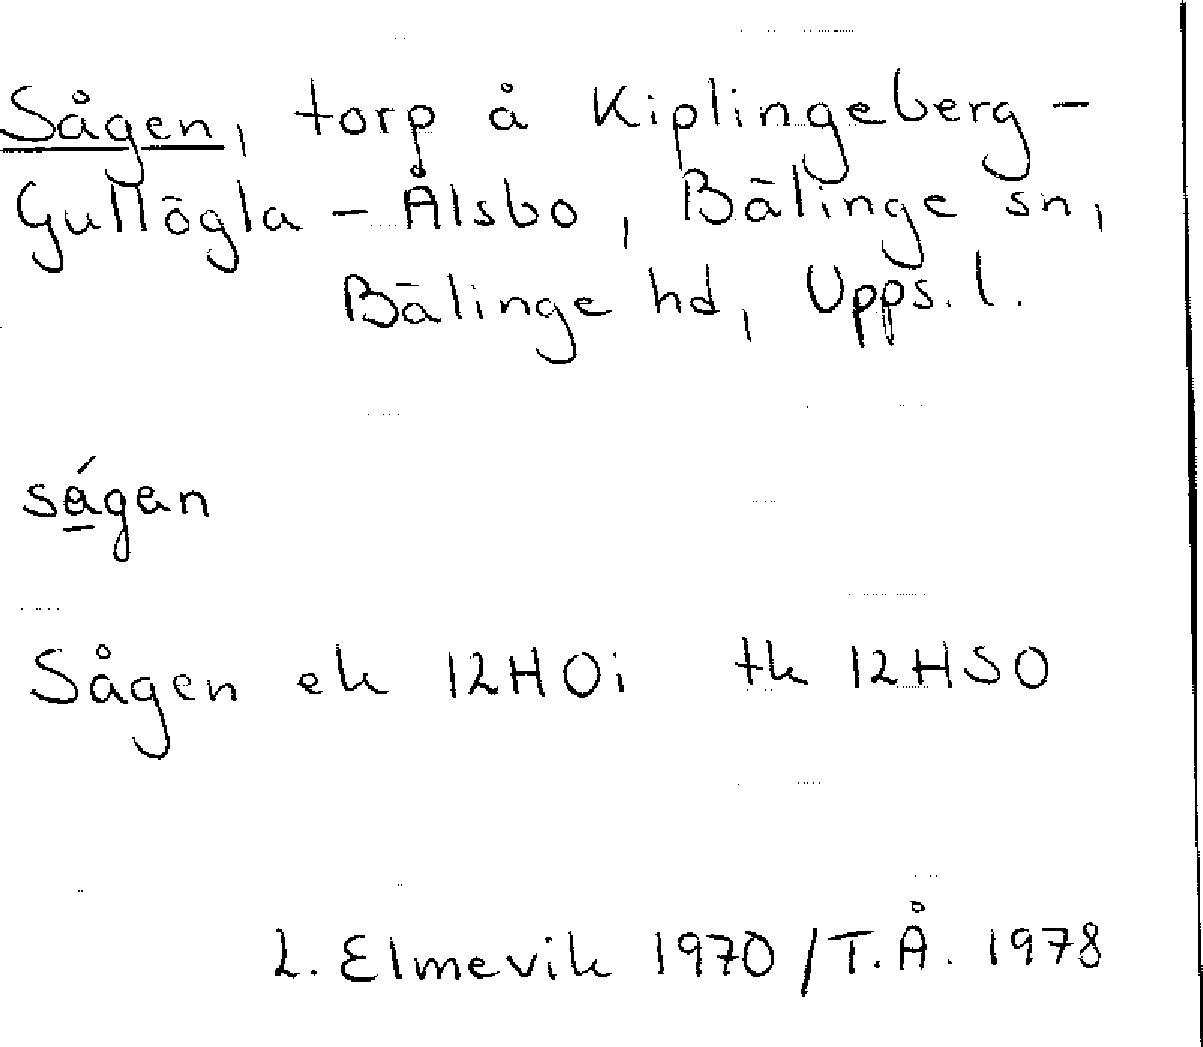 Sågen, torp å Kiplingeberg -
Gullögla - Ålsbo, Bälinge sn,
Bälinge hd, Upps. l.
ságan
Sågen ek 12H0i tk 12HSO
L. Elmevik 1970 / T.Å. 1978